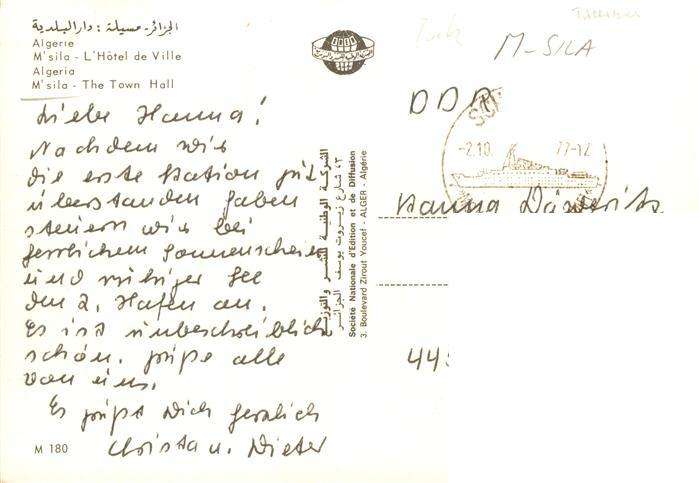 الجزائر - مسيلة : دار البلدية
Algerie
M'sila - L'Hôtel de Ville
Algeria
M'sila - The Town Hall
M-SILA
Liebe Hanna!
Nachdem wir
die erste Station gut
überstanden haben
steuern wir bei
herrlichem Sonnenschein
und ruhiger See
den 2. Hafen an.
Es ist unbeschreiblich
schön. Grüße alle
von uns.
Es grüßt Dich herzlich
Christa u. Dieter
M 180
الشركة الوطنية للنشر والتوزيع
٣، شارع زيروت يوسف الجزائر
Société Nationale d'Edition et de Diffusion
3. Boulevard Zirout Youcef - ALGER - Algérie
DDR
-2.10. 77-12
Hanna
44